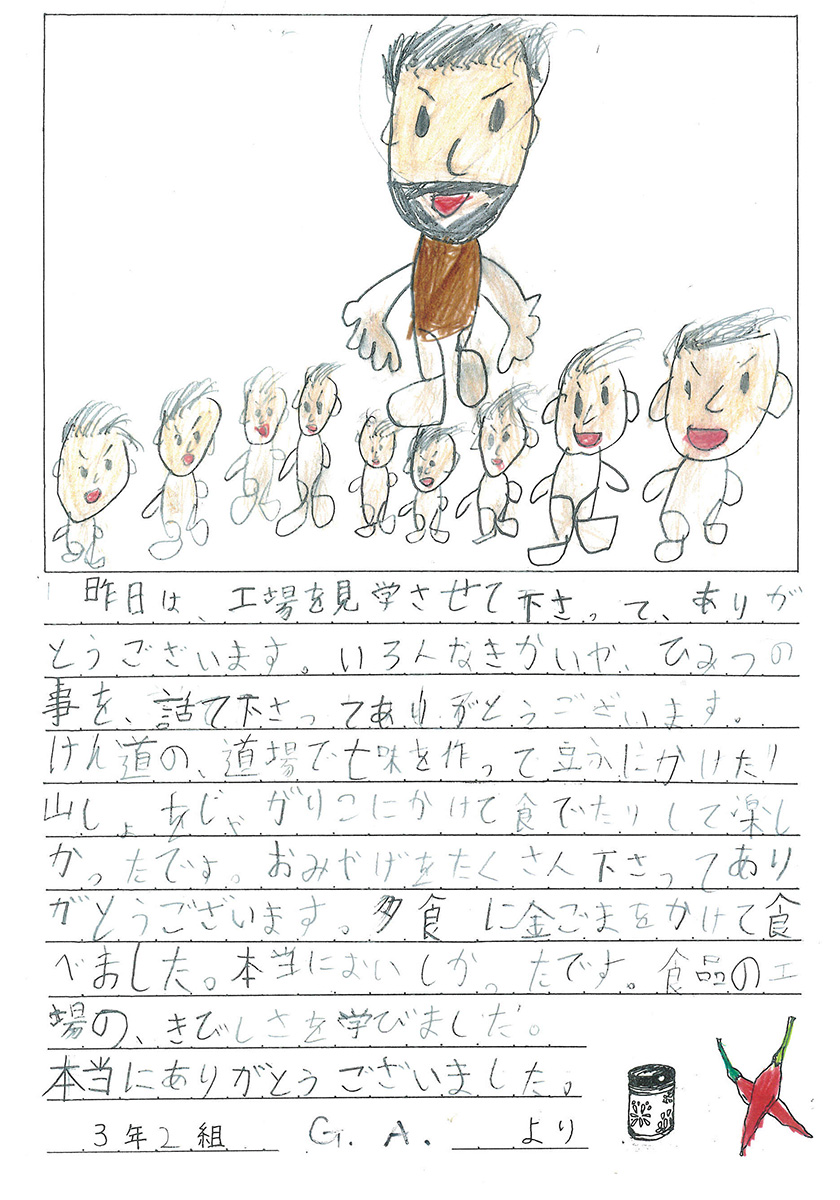 昨日は、工場を見学させて下さって、ありが
とうございます。いろ人なきかいや、ひみつの
事を、話て下さってありがとうございます。
けん道の、道場で七味を作って豆ふにかけたり
山しょをじゃがりこにかけて食でたりして楽し
かったです。おみやげをたくさん下さってあり
がとうございます。夕食に金ごまをかけて食
べました。本当においしかったです。食品の工
場の、きびしさを学びました。
本当にありがとうございました。
3年2組 G. A. より